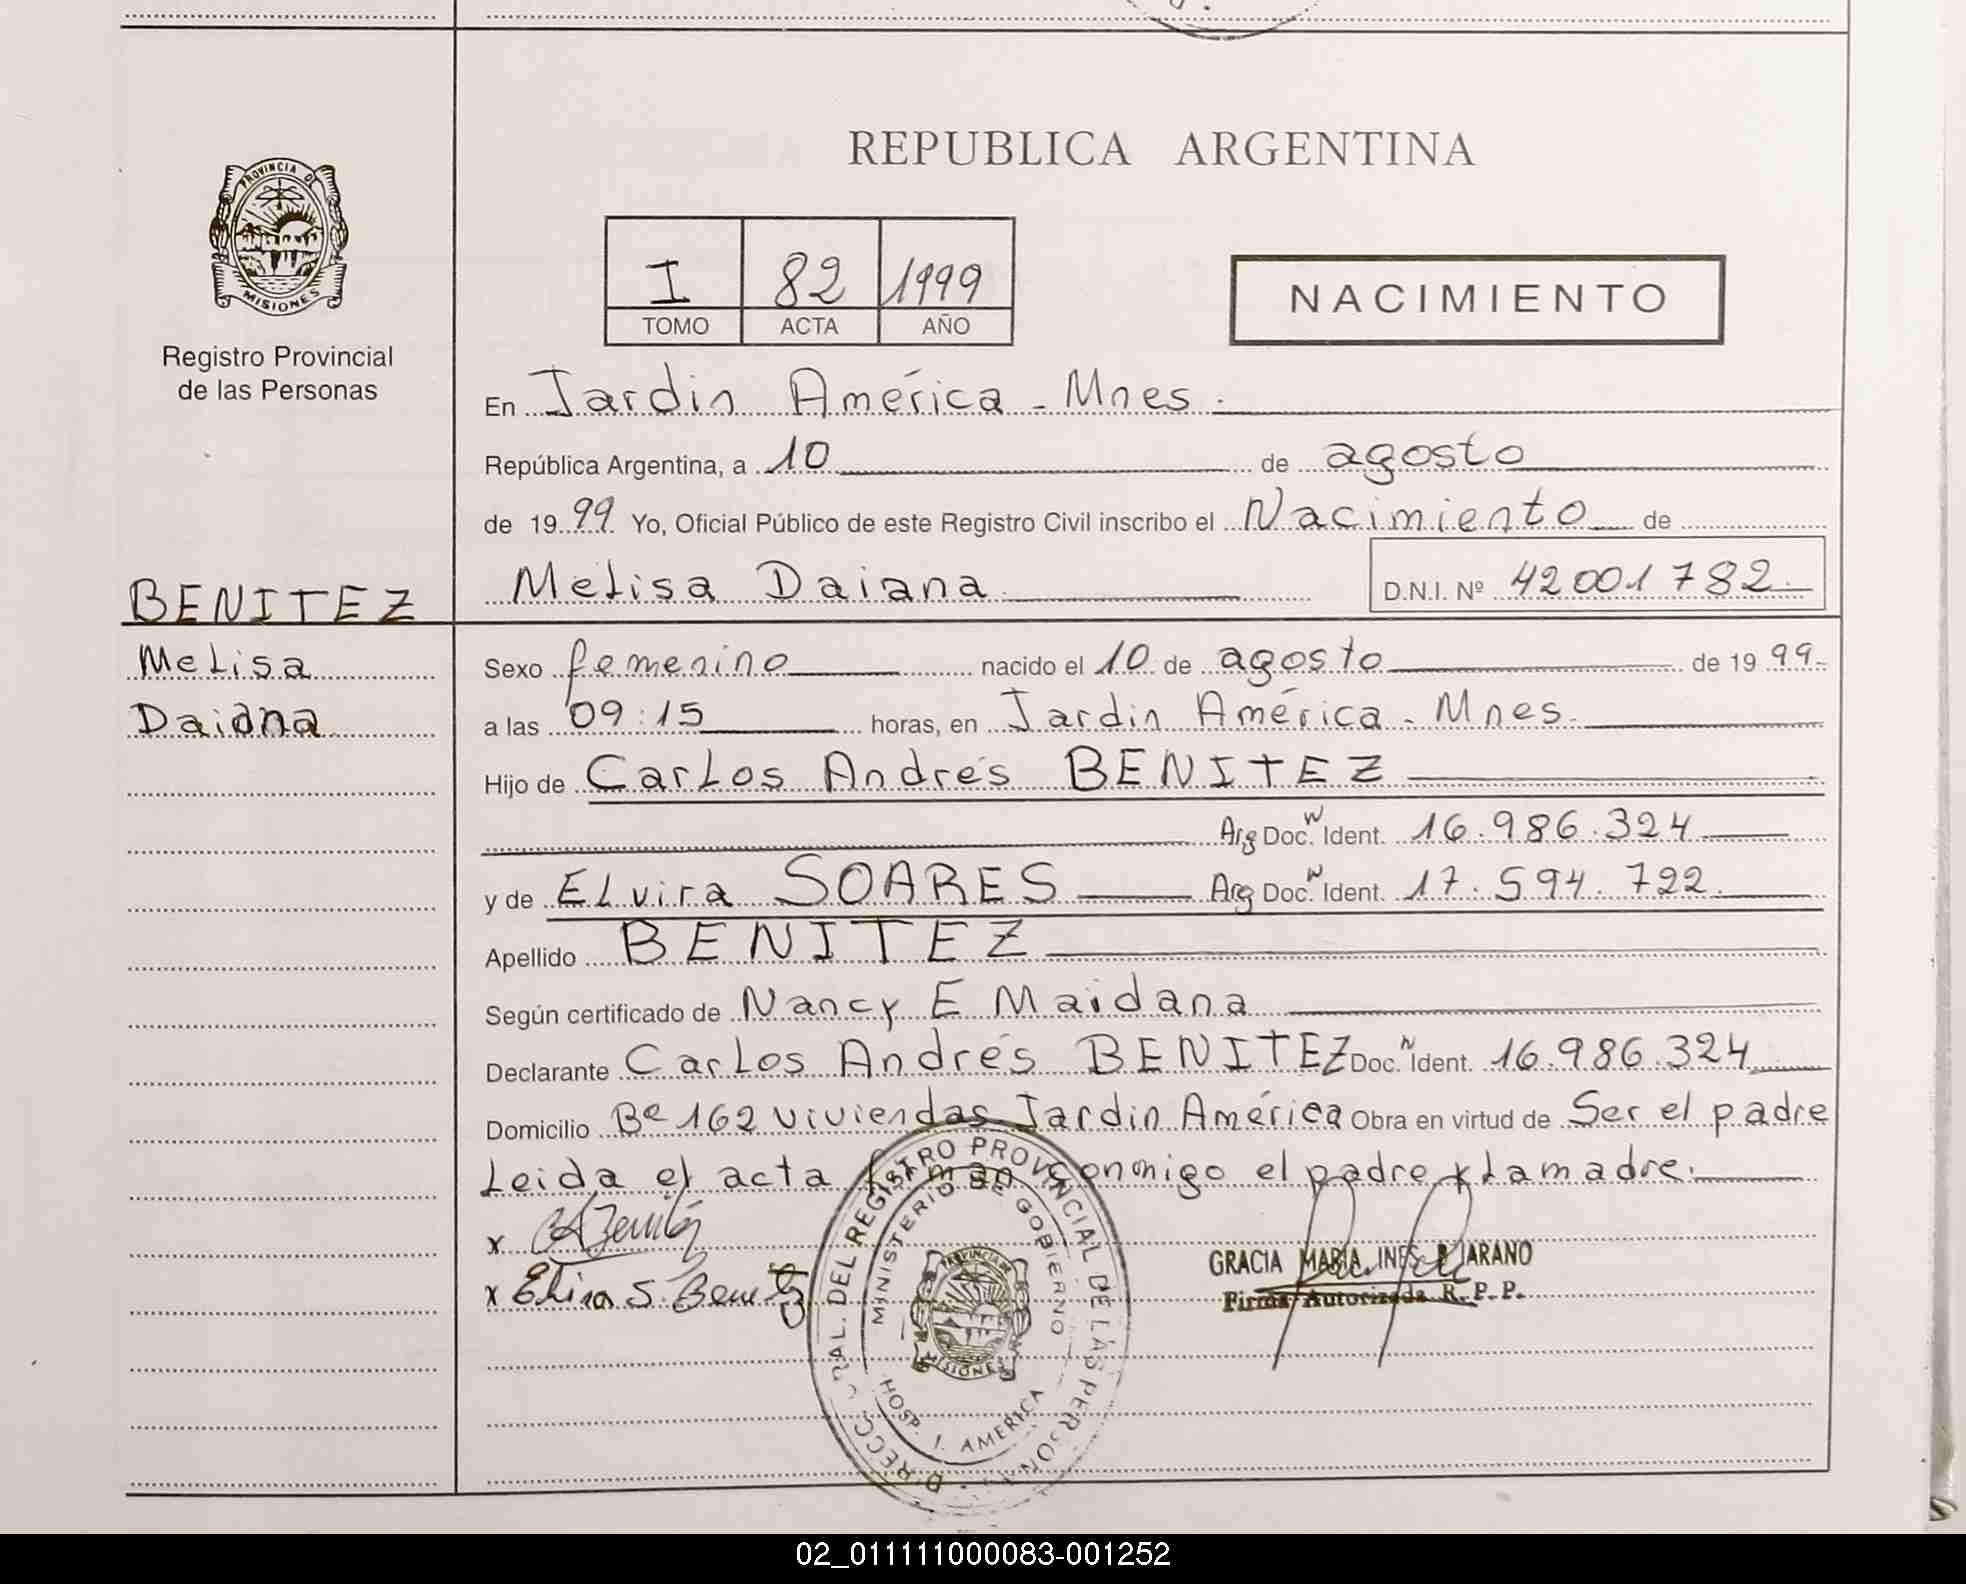 PROVINCIA DE
MISIONES
Registro Provincial
de las Personas
BENITEZ
Melisa
Daiana
REPUBLICA ARGENTINA
I 82 1999
TOMO ACTA AÑO
NACIMIENTO
En Jardin América - Mnes.
República Argentina, a 10 de agosto
de 1999 Yo, Oficial Público de este Registro Civil inscribo el Nacimiento de
Melisa Daiana D.N.I. Nº 42001782.
Sexo femenino nacido el 10 de agosto de 1999.
a las 09:15 horas, en Jardin América - Mnes.
Hijo de Carlos Andrés BENITEZ
Arg Doc. N Ident. 16.986.324
y de Elvira SOARES Arg Doc. N Ident. 17.594.722.
Apellido BENITEZ
Según certificado de Nancy E Maidana
Declarante Carlos Andrés BENITEZ Doc. N Ident. 16.986.324
Domicilio Bº 162 viviendas Jardin América Obra en virtud de Ser el padre
Leida el acta firman conmigo el padre y la madre.
x
x S. Benitez
GRACIA MARIA INES
Firma Autorizada R. P. P.
DEL REGISTRO PROVINCIAL DE LAS PERSONAS
MINISTERIO DE GOBIERNO
PROVINCIA
MISIONES
HOSP. J. AMERICA
02_011111000083-001252